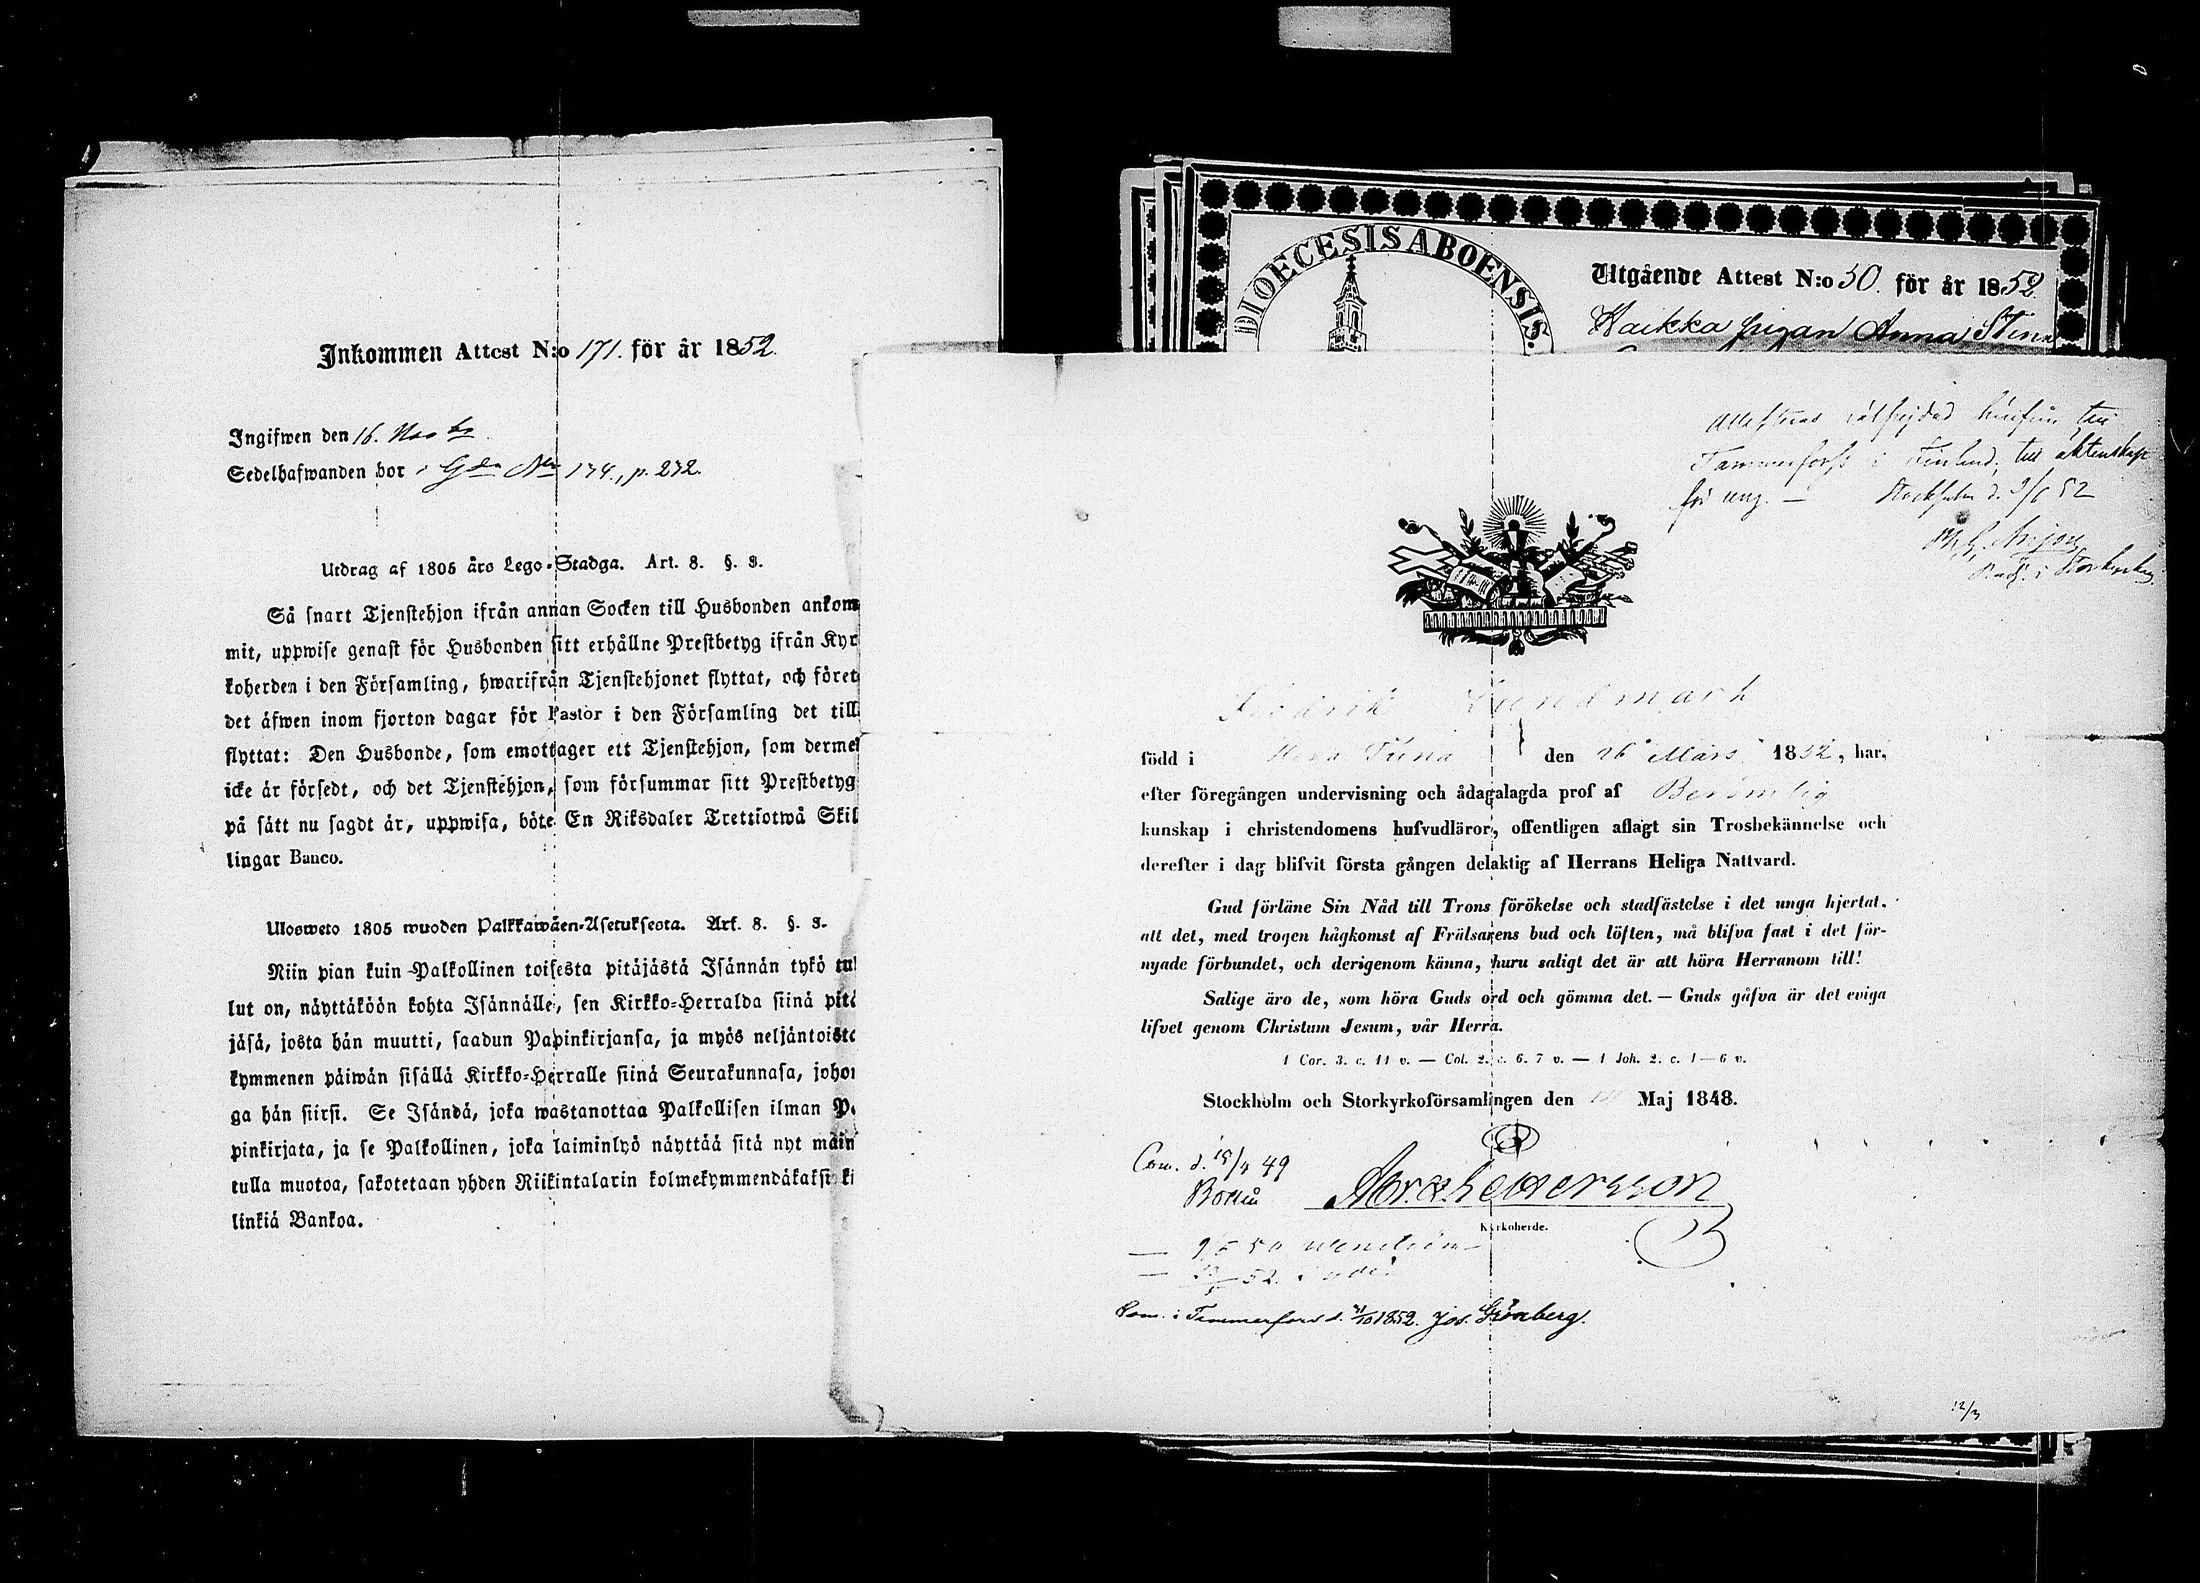 Inkommen Attest N:o 171. för år 1852.
Ingifwen den 16. Novbr
Sedelhafwanden bor i Gda No 174., p. 272.
Utdrag af 1805 års Lego-Stadga. Art. 8. §. 3.
Så snart Tjenstehjon ifrån annan Socken till Husbonden ankom
mit, uppwise genast för Husbonden sitt erhållne Prestbetyg ifrån Kyr
koherden i den Församling, hwarifrån Tjenstehjonet flyttat, och förete
det äfwen inom fjorton dagar för Pastor i den Församling det till
flyttat: Den Husbonde, som emottager ett Tjenstehjon, som dermed
icke är försedt, och det Tjenstehjon, som försummar sitt Prestbetyg
på sätt nu sagdt är, uppwisa, böte En Riksdaler Trettiotwå Skil
lingar Banco.
Ulosweto 1805 wuoden Palkkawäen-Asetuksesta. Art. 8. §. 3.
Niin pian kuin Palkollinen toisesta pitäjästä Isännän tykö tul
lut on, näyttäköön kohta Isännälle, sen Kirkko-Herralda siinä pitä
jäsä, josta hän muutti, saadun Papinkirjansa, ja myös neljäntoista
kymmenen päiwän sisällä Kirkko-Herralle siinä Seurakunnasa, johon
ga hän siirsi. Se Isändä, joka wastanottaa Palkollisen ilman Pa
pinkirjata, ja se Palkollinen, joka laiminlyö näyttää sitä nyt main
tulla muotoa, sakotetaan yhden Riikintalarin kolmekymmendäkaksi ki
linkiä Bankoa.
DIOECESIS ABOENSIS.
Utgående Attest N:o 50. för år 1852.
Kaikka pigan Anna Stina
Attesteras
Tammerfors i Finland, till äktenskap
för ung. — Stockholm d. 9/6 52
Fredrik Lundmark
född i Stora Tuna den 26 Mars 1832, har,
efter föregången undervisning och ådagalagda prof af Berömlig
kunskap i christendomens hufvudläror, offentligen aflagt sin Trosbekännelse och
derefter i dag blifvit första gången delaktig af Herrans Heliga Nattvard.
Gud förläne Sin Nåd till Trons förökelse och stadfästelse i det unga hjertat,
att det, med trogen hågkomst af Frälsarens bud och löften, må blifva fast i det för-
nyade förbundet, och derigenom känna, huru saligt det är att höra Herranom till!
Salige äro de, som höra Guds ord och gömma det. — Guds gåfva är det eviga
lifvet genom Christum Jesum, vår Herra.
1 Cor. 3. c. 11 v. — Col. 2. c. 6. 7 v. — 1 Joh. 2. c. 1—6 v.
Stockholm och Storkyrkoförsamlingen den Maj 1848.
Com. d. 15/4 49
Kyrkoherde.
Com. i Tammerfors d. 31/10 1852. Jos. Grönberg.
12/3